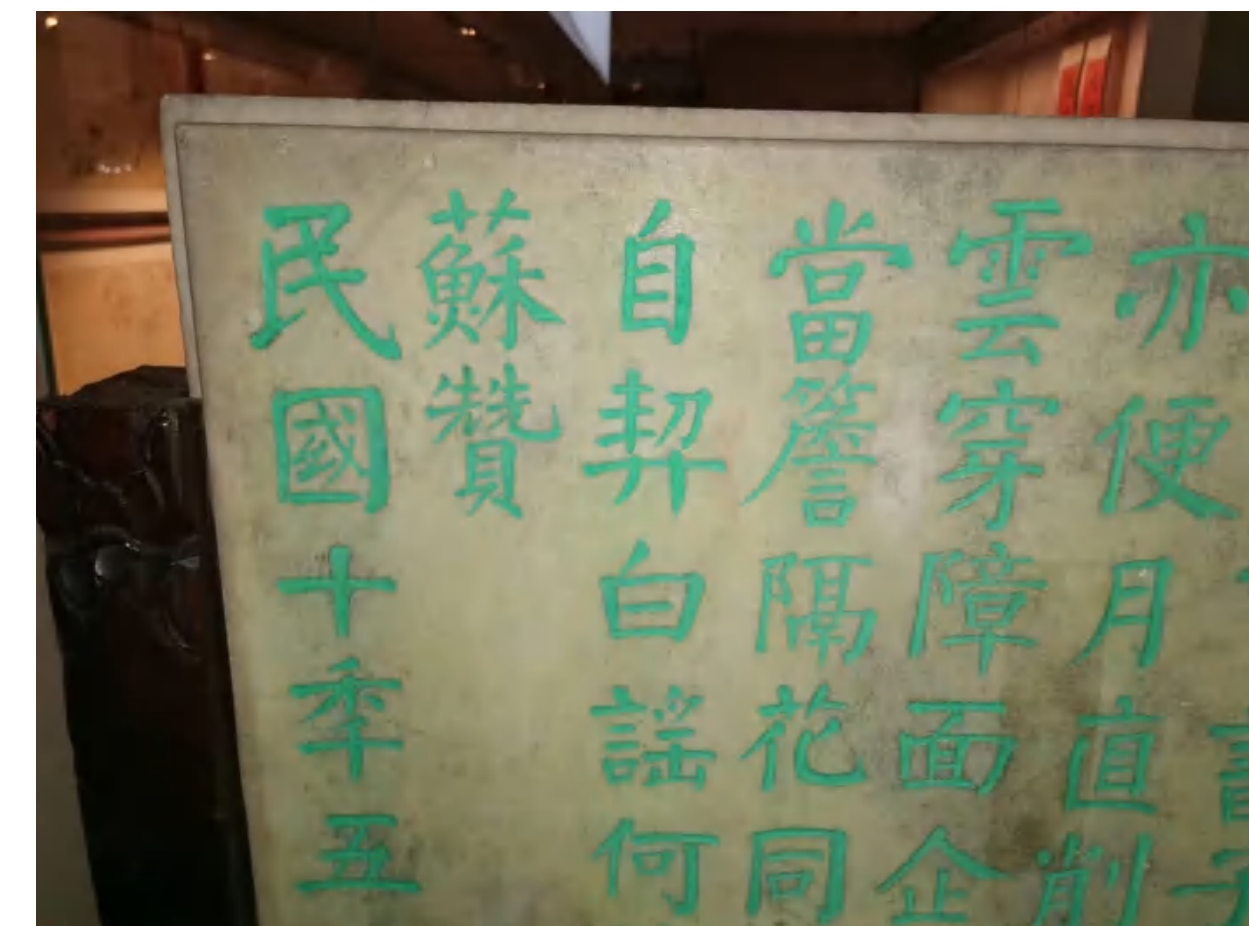 亦便月直削
雲穿障面企
當簷隔花同
自契白謠何
蘇贊
民國十季五